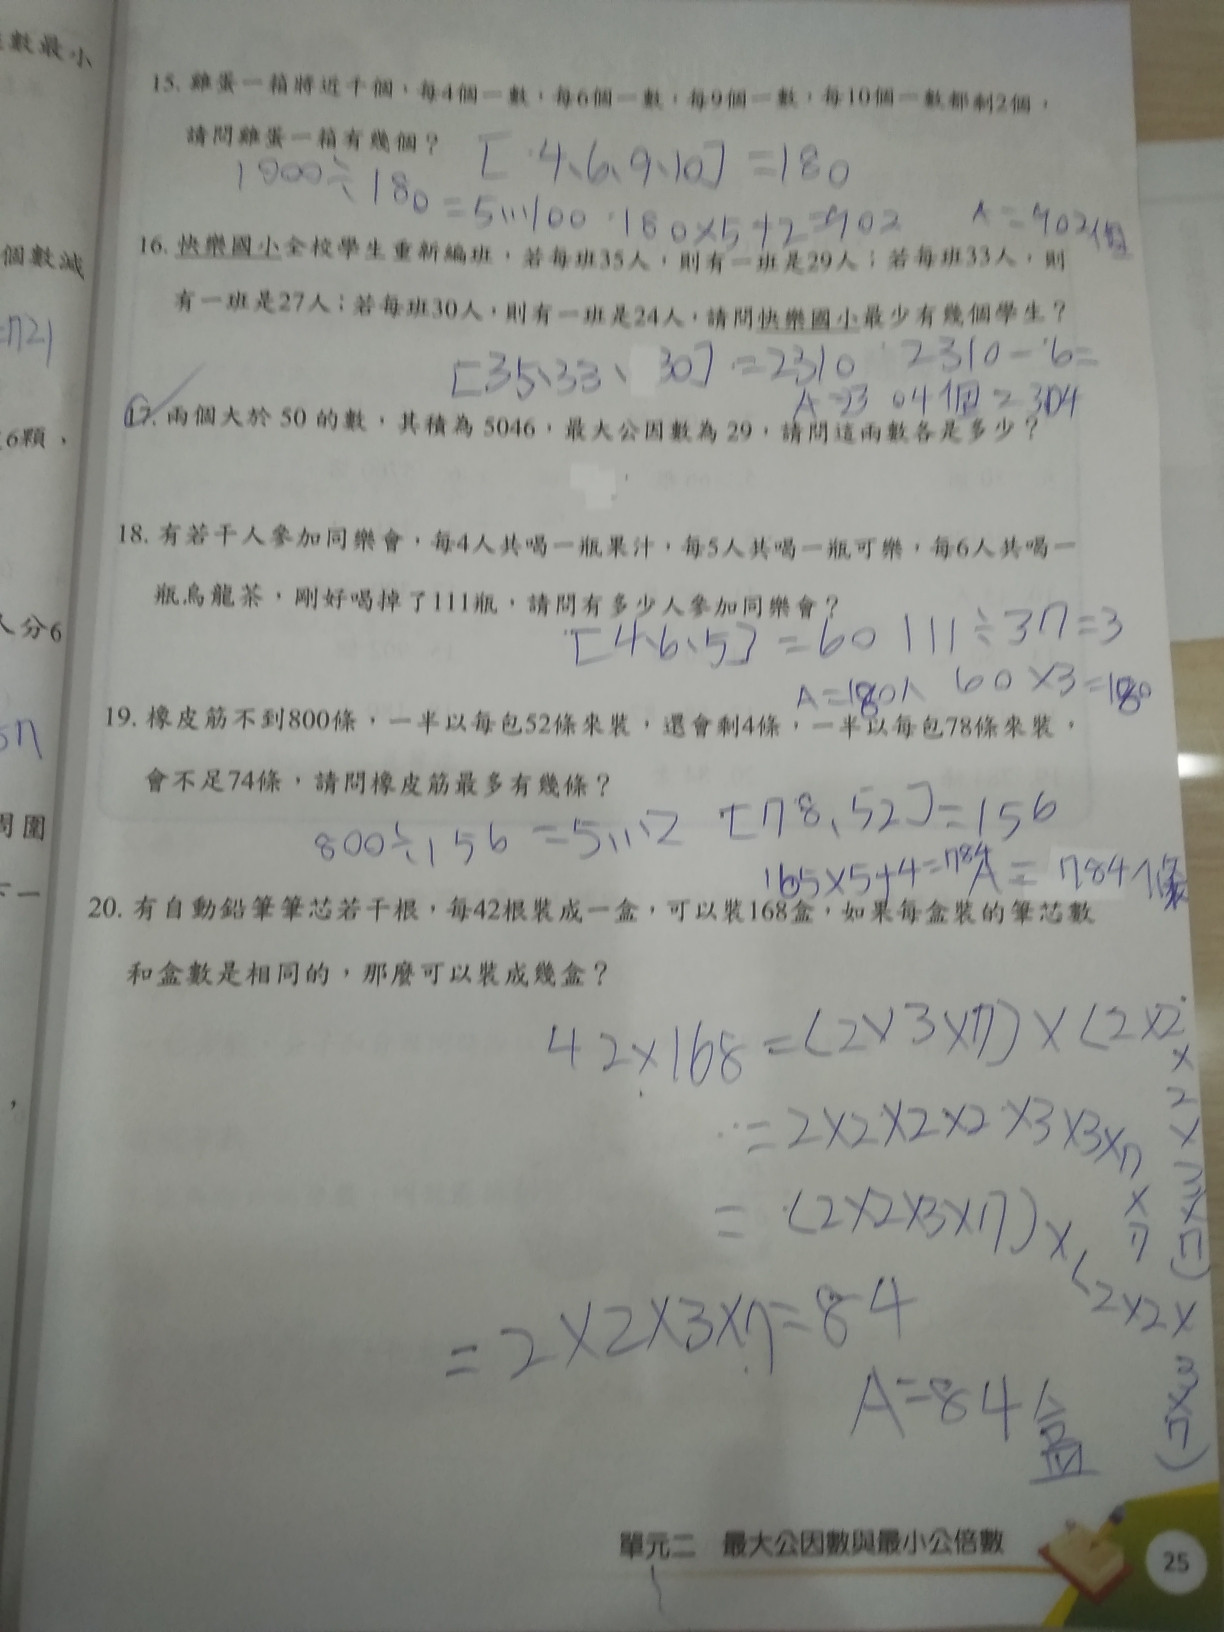 數最小
15. 雞蛋一箱將近千個，每4個一數，每6個一數，每9個一數，每10個一數都剩2個，
請問雞蛋一箱有幾個？
[4、6、9、10]=180
1000÷180=5…100 180×5+2=902 A=902個
個數減
16. 快樂國小全校學生重新編班，若每班35人，則有一班是29人；若每班33人，則
有一班是27人；若每班30人，則有一班是24人，請問快樂國小最少有幾個學生？
=721
[35、33、30]=2310 2310-6=
A=2304個 2304
6顆，
17. 兩個大於 50 的數，其積為 5046，最大公因數為 29，請問這兩數各是多少？
18. 有若干人參加同樂會，每4人共喝一瓶果汁，每5人共喝一瓶可樂，每6人共喝一
瓶烏龍茶，剛好喝掉了111瓶，請問有多少人參加同樂會？
人分6
[4、6、5]=60 111÷37=3
A=180人 60×3=180
57
19. 橡皮筋不到800條，一半以每包52條來裝，還會剩4條，一半以每包78條來裝，
會不足74條，請問橡皮筋最多有幾條？
周圍
800÷156=5…2 [78、52]=156
165×5+4=784 A=784條
下一
20. 有自動鉛筆筆芯若干根，每42根裝成一盒，可以裝168盒，如果每盒裝的筆芯數
和盒數是相同的，那麼可以裝成幾盒？
42×168=(2×3×7)×(2×2×2×3×7)
，
=2×2×2×2×3×3×7×7
=(2×2×3×7)×(2×2×3×7)
=2×2×3×7=84
A=84盒
單元二 最大公因數與最小公倍數
25